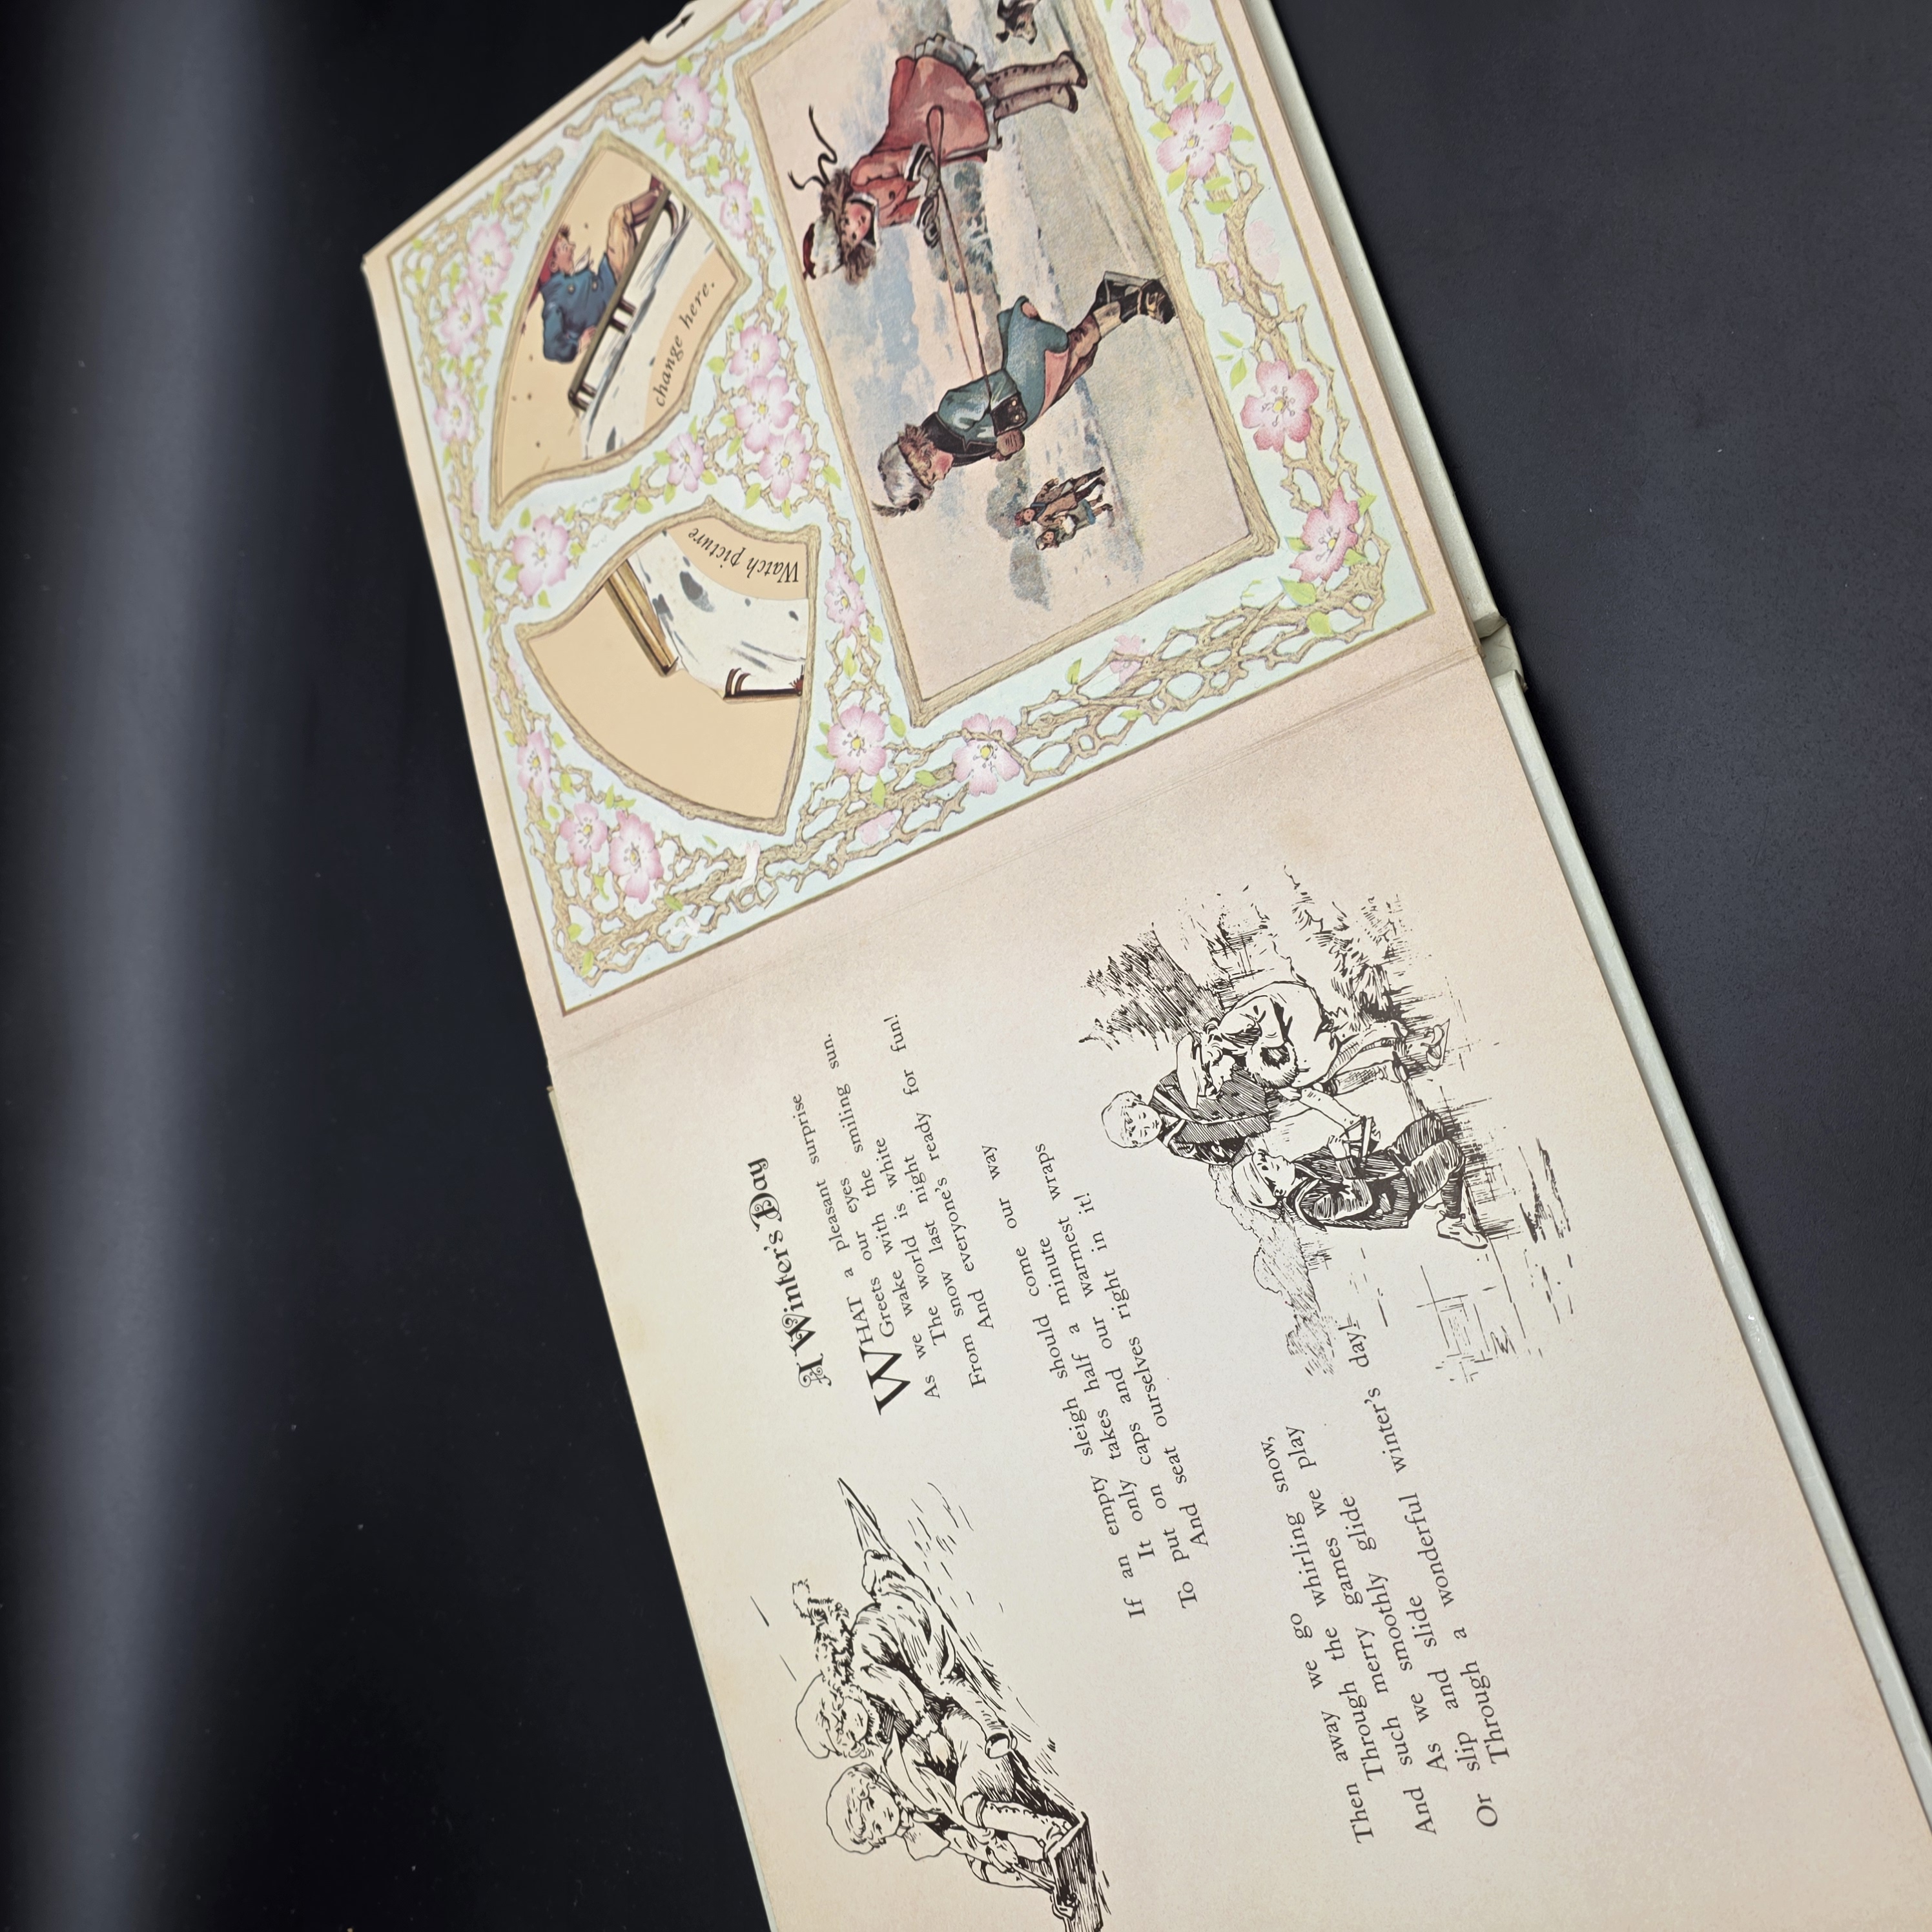 A Winter's Day
WHAT a pleasant surprise
Greets our eyes
As we wake with the smiling sun.
The world is white
From snow last night
And everyone's ready for fun!
If an empty sleigh should come our way
It only takes half a minute
To put on caps and our warmest wraps
And seat ourselves right in it!
Then away we go whirling snow,
Through the games we play
Through merry glide
And such smoothly
As we slide
Or slip and
Through a wonderful winter's day!
Watch picture
change here.